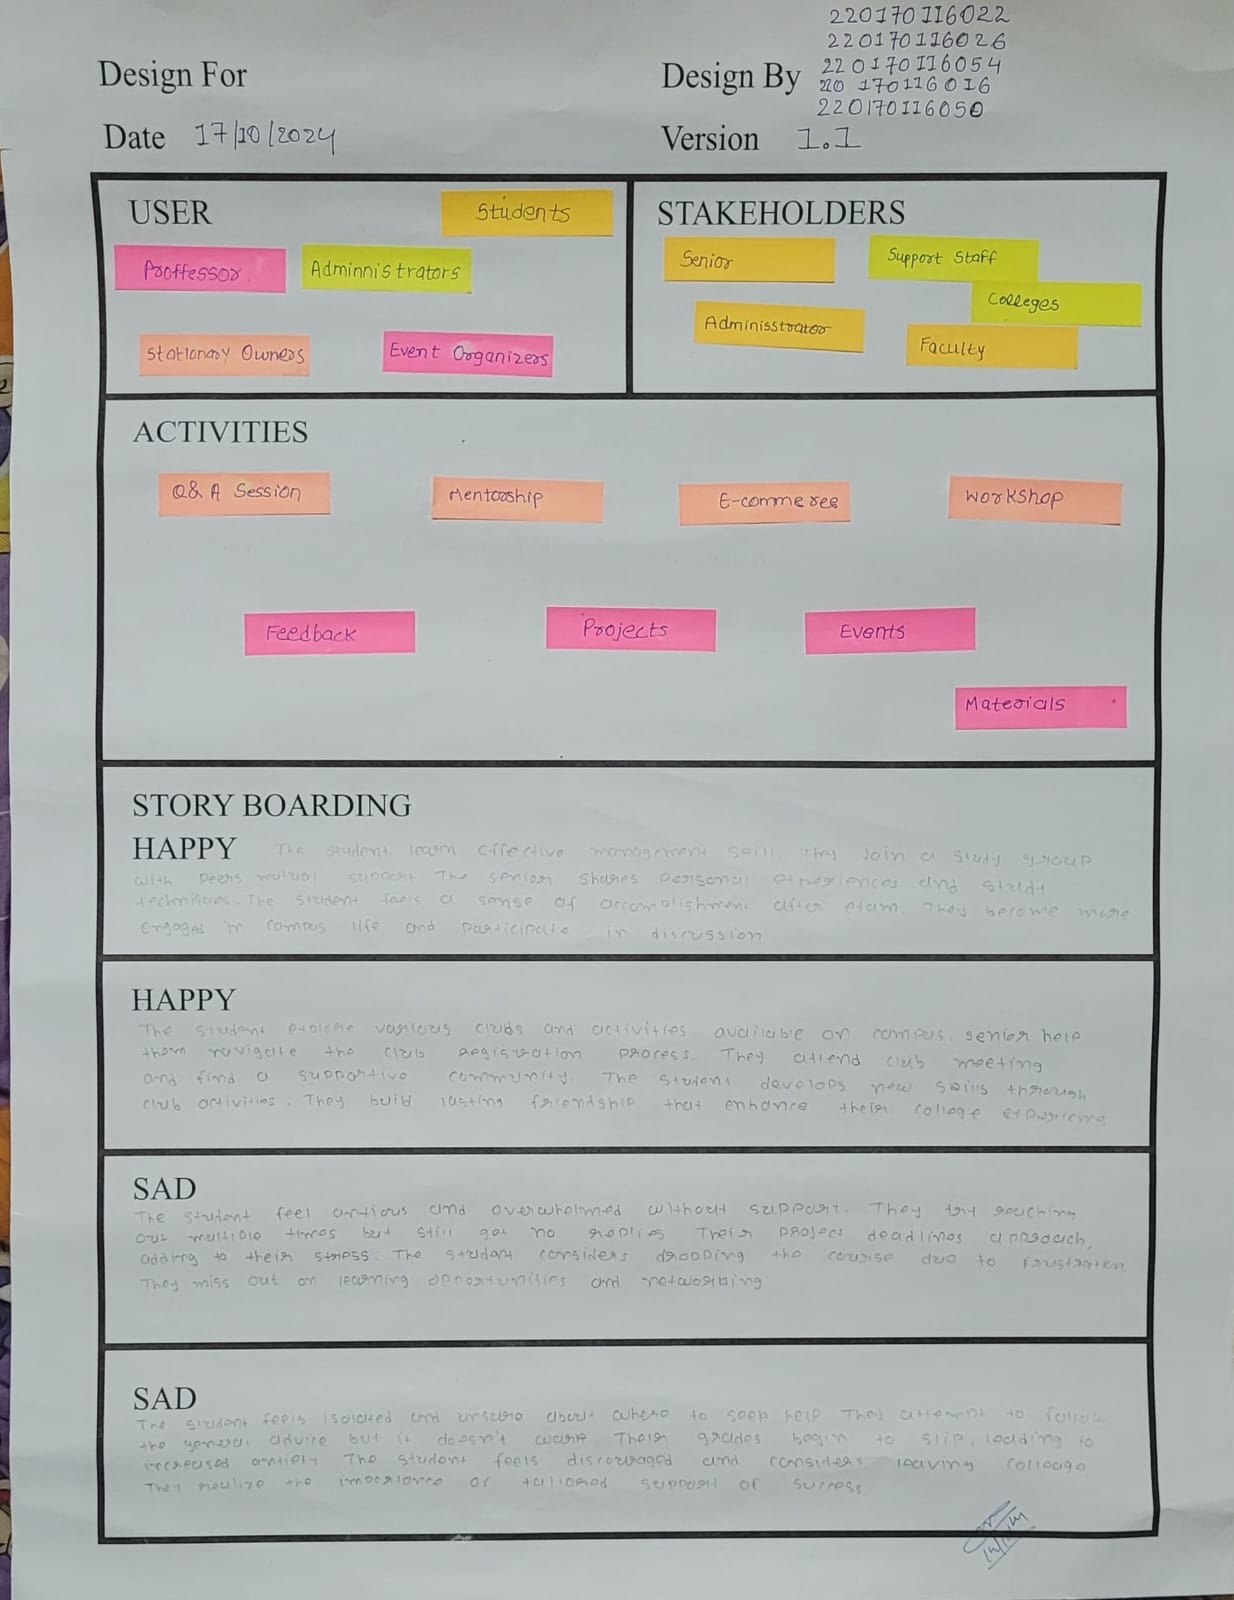 220170116022
220170116026
Design For
Design By
220170116054
220 170116016
220170116050
Date 17/10/2024
Version 1.1
USER
Students
Proffessor
Adminnistrators
Stationary Owners
Event Organizers
STAKEHOLDERS
Senior
Support Staff
Colleges
Adminisstrator
Faculty
ACTIVITIES
Q&A Session
Mentorship
E-commerec
Workshop
Feedback
Projects
Events
Materials
STORY BOARDING
HAPPY The student learn effective management skill. They Join a study group
with peers mutual support The senior shares personal experiences and study
techniques. The student feels a sense of accomplishment after exam. They become more
engaged in campus life and participate in discussion
HAPPY
The student explore various clubs and activities available on campus. senior help
them navigate the club registration process. They attend club meeting
and find a supportive community. The student develops new skills through
club activities. They build lasting friendship that enhance their college experience
SAD
The student feel anxious and overwhelmed without support. They try reaching
out multiple times but still get no replies Their project deadlines approach,
adding to their stress. The student considers dropping the course due to frustration
They miss out on learning opportunities and networking
SAD
The student feels isolated and unsure about where to seek help They attempt to follow
the general advice but it doesn't work. Their grades begin to slip, leading to
increased anxiety The student feels discouraged and considers leaving college
They realize the importance of tailored support of success